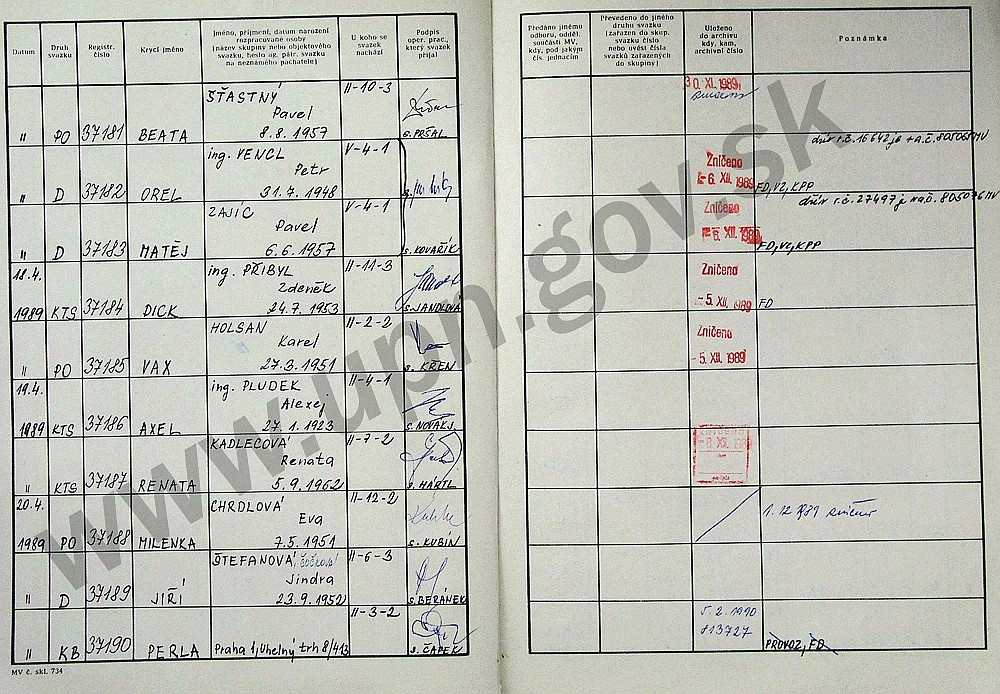 Datum
Druh svazku
Registr. číslo
Krycí jméno
Jméno, příjmení, datum narození
rozpracované osoby
(název skupiny nebo objektového
svazku, heslo ag. pátr. svazku
na neznámého pachatele)
U koho se svazek nachází
Podpis
oper. prac.,
který svazek
přijal
Předáno jinému
odboru, odděl.
součásti MV,
kdy, pod jakým
čís. jednacím
Převedeno do jiného
druhu svazku
(zařazen do skup.
svazku číslo
nebo uvést čísla
svazků zařazených
do skupiny)
Uloženo
do archivu
kdy, kam,
archivní číslo
Poznámka
ŠŤASTNÝ II-10-3 30. XI. 1989
Pavel
" PO 37181 BEATA 8.8.1957 s. PRŠAL
ing. VENCL V-4-1 Zničeno
Petr
" D 37182 OREL 31.7.1948 -6. XII. 1989 FD, VZ, KPP
ZAJÍC V-4-1 Zničeno
Pavel
" D 37183 MATĚJ 6.6.1957 s. KOVAŘÍK -6. XII. 1989 FD, VZ, KPP
18.4. ing. PŘIBYL II-11-3 Zničeno
Zdeněk
1989 KTS 37184 DICK 24.7.1953 s. JANDLOVÁ -5. XII. 1989 FD
HOLSAN II-2-2 Zničeno
Karel
" PO 37185 VAX 27.3.1951 s. KŘEN -5. XII. 1989
19.4. ing. PLUDEK II-4-1
Alexej
1989 KTS 37186 AXEL 27.1.1923 s. NOVÁK J.
KADLECOVÁ II-7-2 Zničeno
Renata -6. XII. 1989
" KTS 37187 RENATA 5.9.1962 s. HÁRTL
20.4. CHRDLOVÁ II-12-2
Eva
1989 PO 37188 MILENKA 7.5.1951 s. KUBÍN
ŠTEFANOVÁ, II-6-3
Jindra
" D 37189 JIŘÍ 23.9.1952 s. BERÁNEK
II-3-2 5.2.1990
813727
" KB 37190 PERLA Praha 1, Uhelný trh 8/413 s. ČAPEK PROVOZ, FD
MV č. skl. 734
www.upn.gov.sk